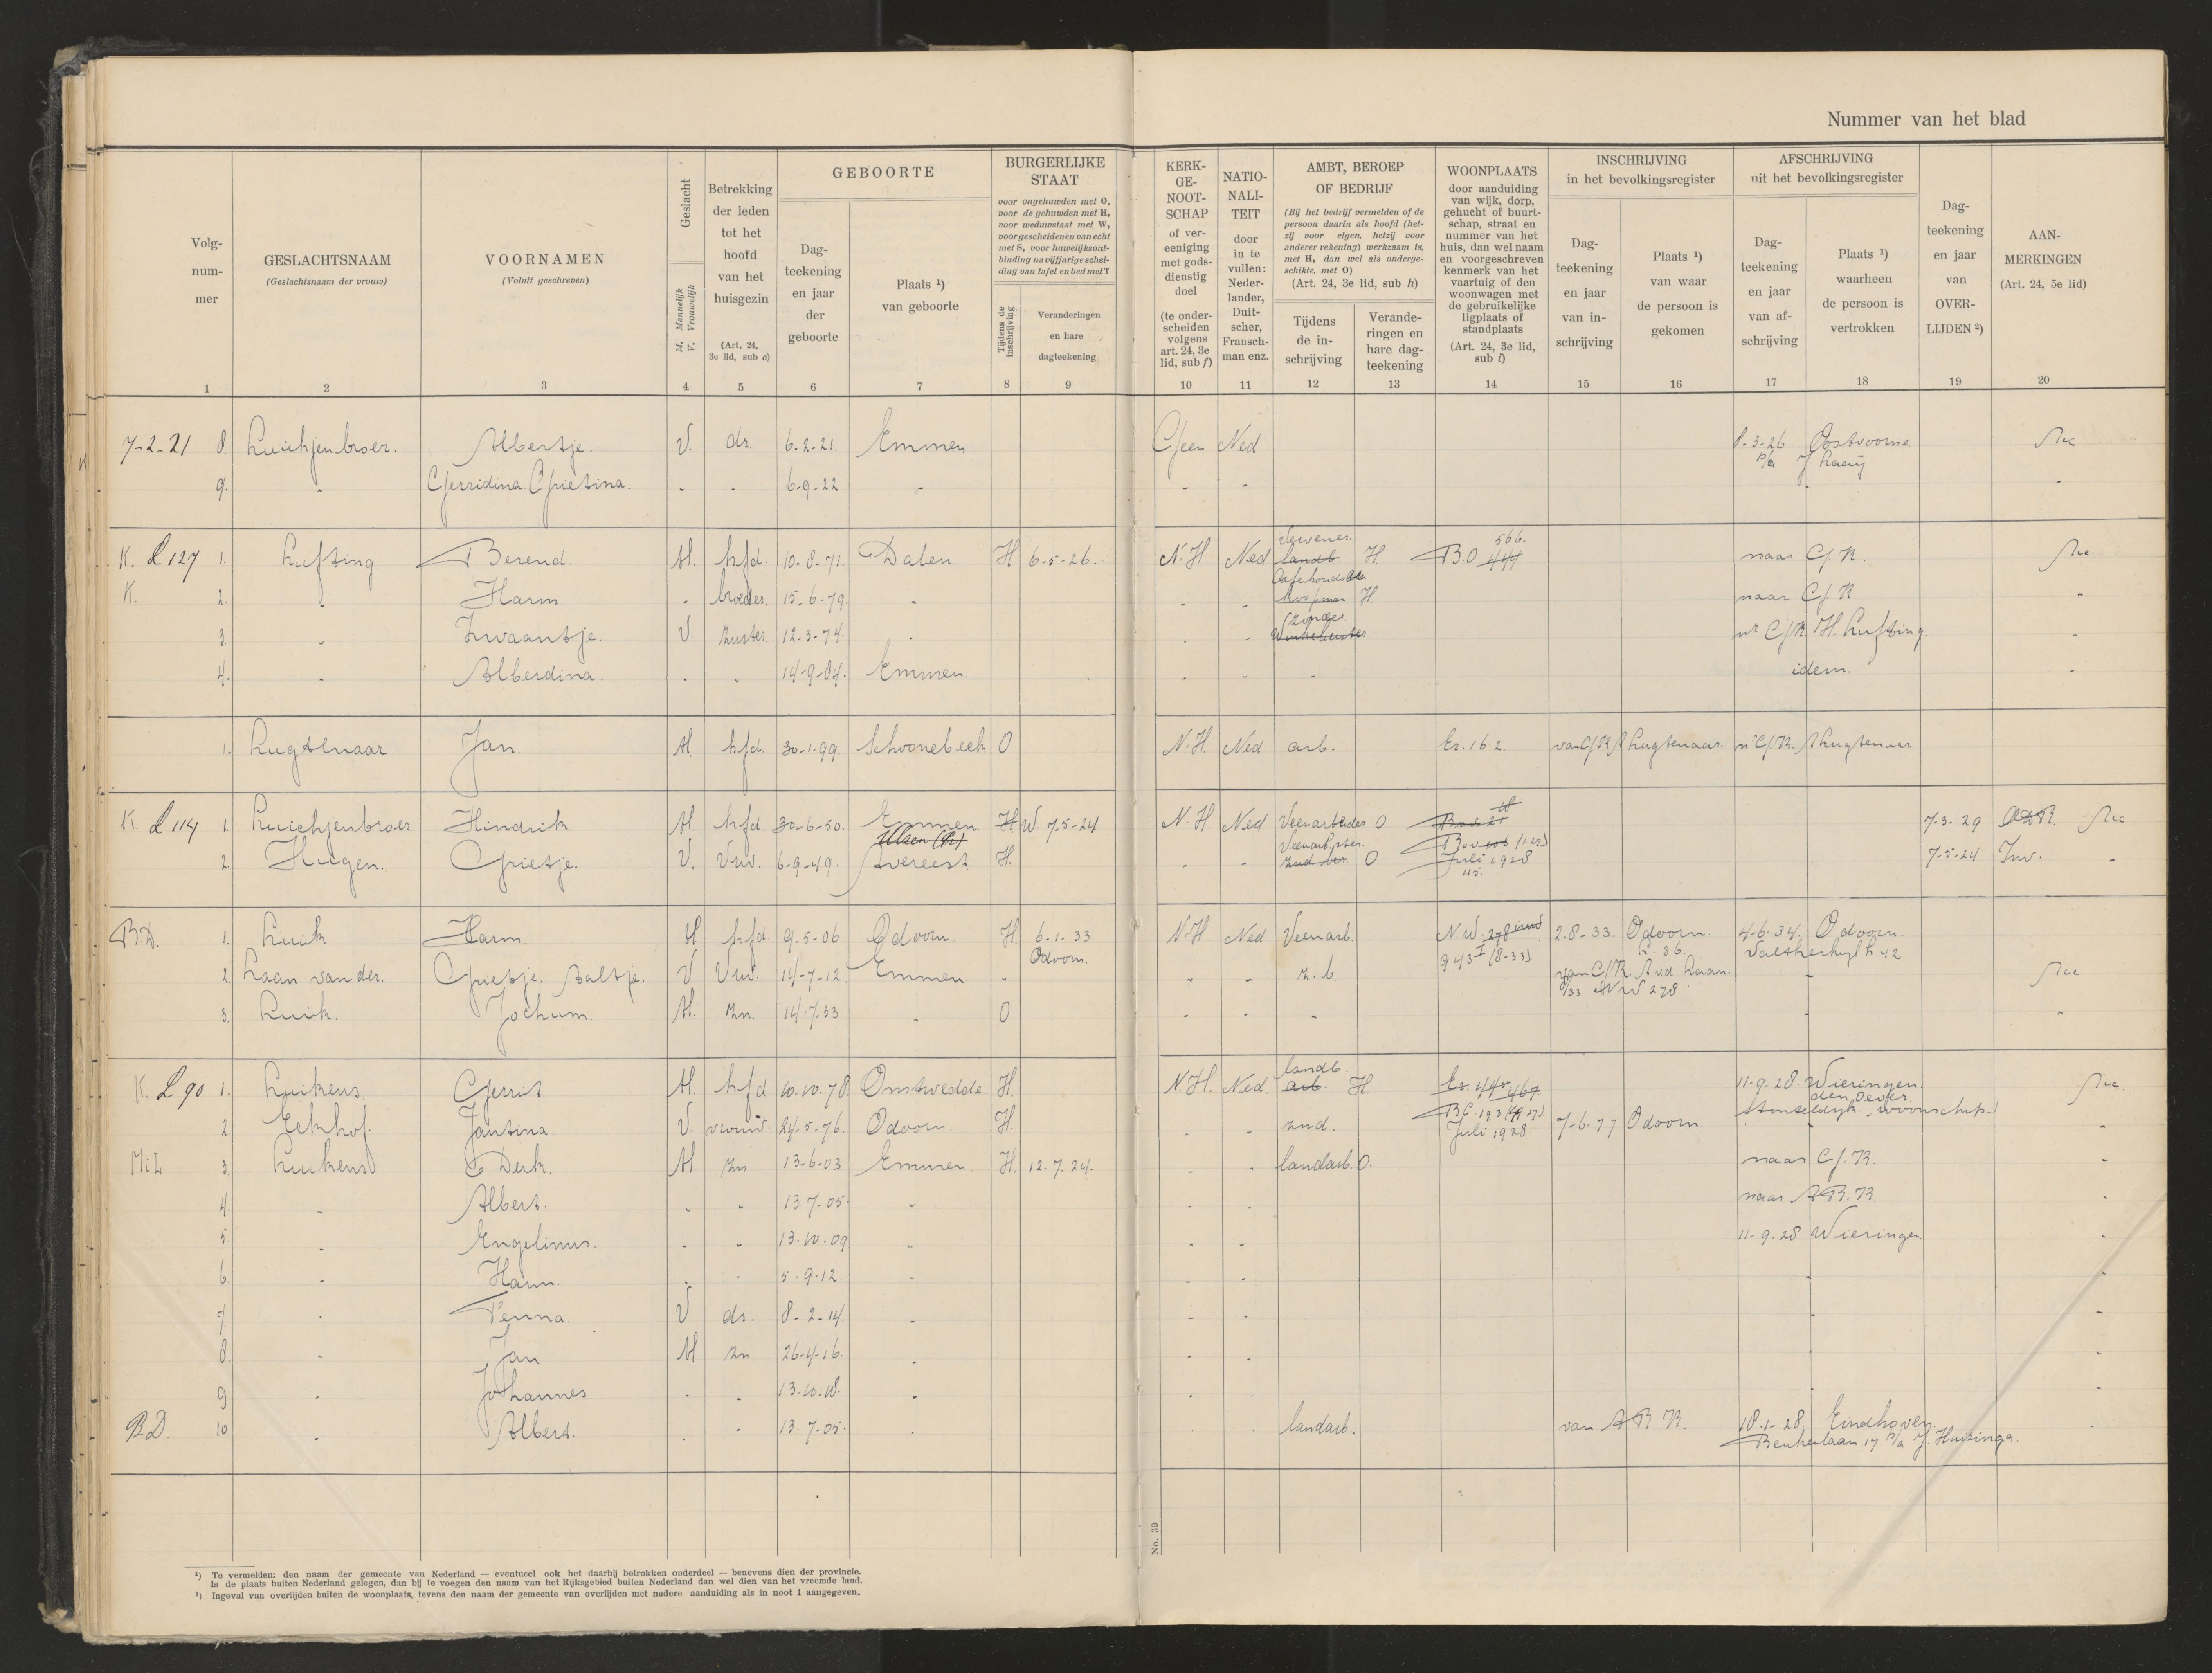 Nummer van het blad
Volg-
num-
mer
1
GESLACHTSNAAM
(Geslachtsnaam der vrouw)
2
VOORNAMEN
(Voluit geschreven)
3
Geslacht
M. Mannelijk
V. Vrouwelijk
4
Betrekking
der leden
tot het
hoofd
van het
huisgezin
(Art. 24,
3e lid, sub c)
5
GEBOORTE
Dag-
teekening
en jaar
der
geboorte
6
Plaats ¹)
van geboorte
7
BURGERLIJKE
STAAT
voor ongehuwden met O,
voor de gehuwden met H,
voor weduwstaat met W,
voor gescheidenen van echt
met S, voor huwelijksont-
binding na vijfjarige schei-
ding van tafel en bed met T
Tijdens de
inschrijving
8
Veranderingen
en hare
dagteekening
9
KERK-
GE-
NOOT-
SCHAP
of ver-
eeniging
met gods-
dienstig
doel
(te onder-
scheiden
volgens
art. 24, 3e
lid, sub f)
10
NATIO-
NALI-
TEIT
door
in te
vullen:
Neder-
lander,
Duit-
scher,
Fransch-
man enz.
11
AMBT, BEROEP
OF BEDRIJF
(Bij het bedrijf vermelden of de
persoon daarin als hoofd (het-
zij voor eigen, hetzij voor
anderer rekening) werkzaam is,
met H, dan wel als onderge-
schikte, met O)
(Art. 24, 3e lid, sub h)
Tijdens
de in-
schrijving
12
Verande-
ringen en
hare dag-
teekening
13
WOONPLAATS
door aanduiding
van wijk, dorp,
gehucht of buurt-
schap, straat en
nummer van het
huis, dan wel naam
en voorgeschreven
kenmerk van het
vaartuig of den
woonwagen met
de gebruikelijke
ligplaats of
standplaats
(Art. 24, 3e lid,
sub i)
14
INSCHRIJVING
in het bevolkingsregister
Dag-
teekening
en jaar
van in-
schrijving
15
Plaats ¹)
van waar
de persoon is
gekomen
16
AFSCHRIJVING
uit het bevolkingsregister
Dag-
teekening
en jaar
van af-
schrijving
17
Plaats ¹)
waarheen
de persoon is
vertrokken
18
Dag-
teekening
en jaar
van
OVER-
LIJDEN ²)
19
AAN-
MERKINGEN
(Art. 24, 5e lid)
20
7-2-21 8. Luichjenbroer. Albertje. V. dr. 6-2-21. Emmen Geen Ned 8-3-26 Oostvoorne
p/a J
9. " Gerridina Grietina. " " 6-9-22 "
K. L 127 1. Lufting Berend. M. hfd. 10-8-71. Dalen. H 6-5-26. N.H Ned Vervener. landb. H. B.O 444 566. naar G.K.
K. 2. " Harm. " broeder. 15-6-79. " Cafehouder Koopman H. naar G.K
3. " Zwaantje. V. zuster. 12-3-74. " zonder Winkelierster nr G.K. H. Lufting.
4. " Alberdina. " " 14-9-04. Emmen. idem.
1. Lugtenaar Jan. M. hfd. 30-1-99 Schoonebeek O N.H. Ned arb. Er. 162. van G.K. Lugtenaar. nr G.K. Lugtenaar
K. L 114 1. Luichjenbroer Hindrik M. hfd. 30-6-50. Emmen H W. 7-5-24 N.H Ned Veenarbeider O 7-3-29
2. Hugen. Grietje. V. Vrw. 6-9-49. Ulsen (Pr) Avereest H. Veenarbster. O Juli 1928 115. 7-5-24 Inv.
B.D. 1. Luik Harm. M hfd 9-5-06 Odoorn. H. 6-1-33 Odoorn. N.H Ned Veenarb. N.W. 278 943 I (8-33) 2.8-33. Odoorn. L. 36. 4-6-34. Odoorn.
2. Laan van der. Grietje Baltje. V Vrw. 14-7-12 Emmen " z.b. van G.K. A v d Laan.
/33 NW 278
3. Luik. Jochum. M. zn. 14-7-33 " O
K. L 90 1. Luikens Gerrit. M. hfd 10.10.78 Onstwedde H. N.H. Ned. landb. arb. H. Er. 445 467 11-9-28. Wieringen.
den Oever
2. Eekhof. Jantina. V. vrouw. 24-5-76. Odoorn H. znd. B.C. 193 Juli 1928 7-6-77 Odoorn. woonschip
Mil 3. Luikens Derk. M. zn 13-6-03 Emmen H. 12.7.24. landarb. O. naar G.K.
4. " Albert. " " 13.7-05 " naar A.B.K.
5. " Engelinus. " " 13-10-09 " 11-9-28 Wieringen
6. " Harm. " " 5-9-12 "
7. " Tenna. V dr. 8-2-14. "
8. " Jan M zn 26-4-16. "
9 " Johannes. " " 13.10.18. "
B.D. 10. " Albert. " " 13-7-05. " landarb. van A B K. 18-1-28. Eindhoven.
Beukenlaan 17 p/a J. Huizinga.
No. 39
¹) Te vermelden: den naam der gemeente van Nederland — eventueel ook het daarbij betrokken onderdeel — benevens dien der provincie.
Is de plaats buiten Nederland gelegen, dan bij te voegen den naam van het Rijksgebied buiten Nederland dan wel dien van het vreemde land.
²) Ingeval van overlijden buiten de woonplaats, tevens den naam der gemeente van overlijden met nadere aanduiding als in noot 1 aangegeven.